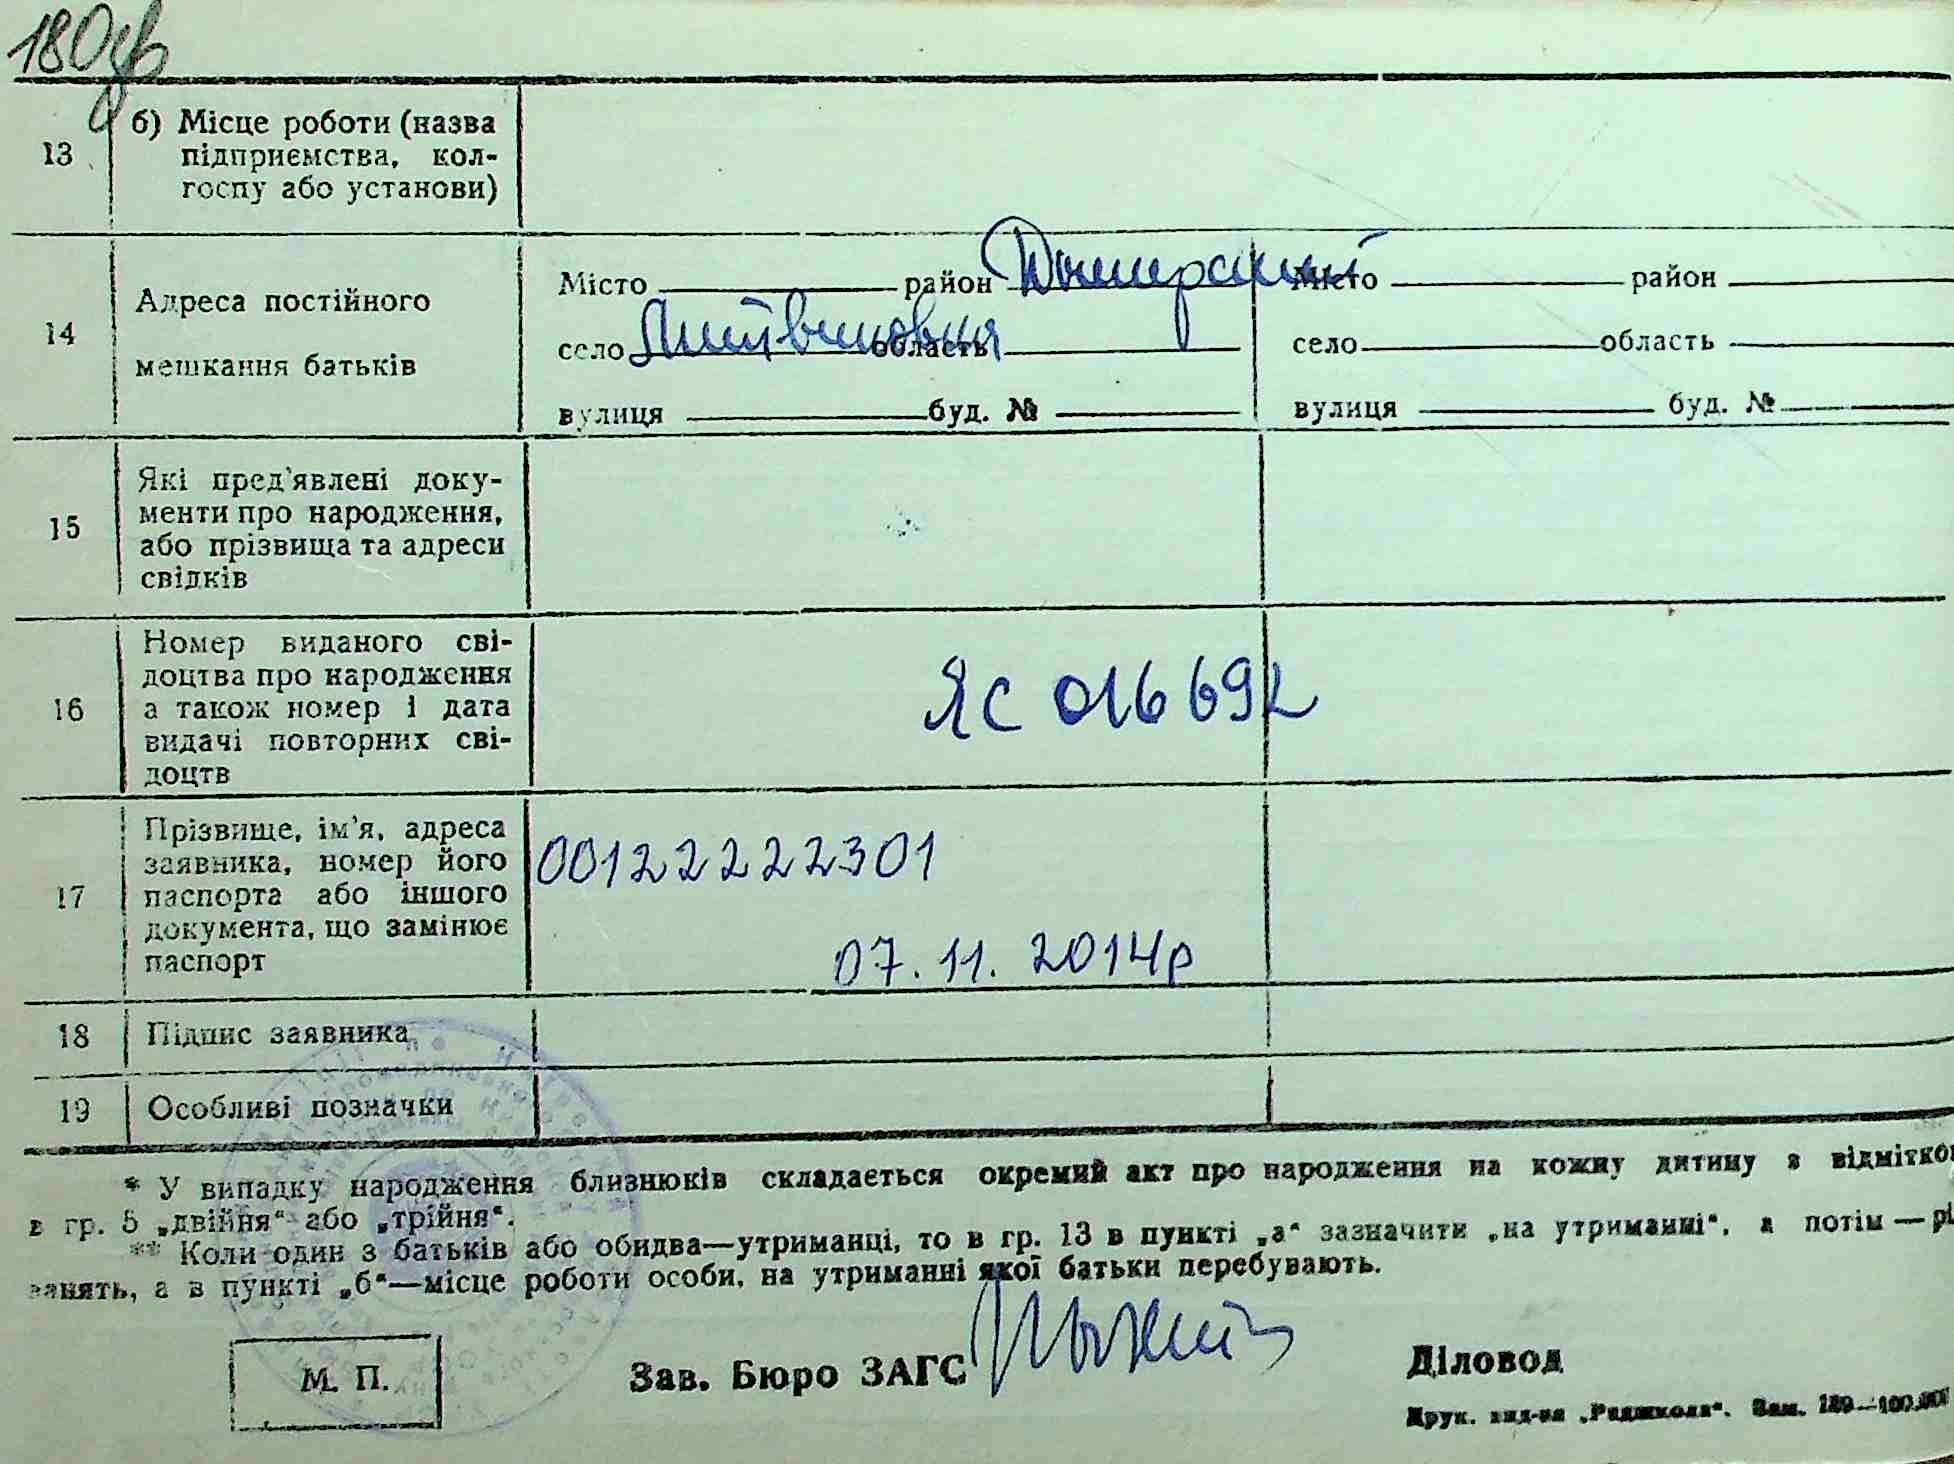 180зв
13 б) Місце роботи (назва
підприємства, кол-
госпу або установи)
14 Адреса постійного
мешкання батьків
Місто район Димерський
село Литвиновка область
вулиця буд. №
Місто район
село область
вулиця буд. №
15 Які пред'явлені доку-
менти про народження,
або прізвища та адреси
свідків
16 Номер виданого сві-
доцтва про народження
а також номер і дата
видачі повторних сві-
доцтв
ЯС 016692
17 Прізвище, ім'я, адреса
заявника, номер його
паспорта або іншого
документа, що замінює
паспорт
00122222301
07.11.2014р
18 Підпис заявника
19 Особливі позначки
* У випадку народження близнюків складається окремий акт про народження на кожну дитину з відмітко
в гр. 5 „двійня“ або „трійня“.
** Коли один з батьків або обидва—утриманці, то в гр. 13 в пункті „а“ зазначити „на утриманні“, а потім — рі
занять, а в пункті „б“—місце роботи особи, на утриманні якої батьки перебувають.
М. П.
Зав. Бюро ЗАГС
Діловод
Друк. вид-ва „Радшкола“. Зам.